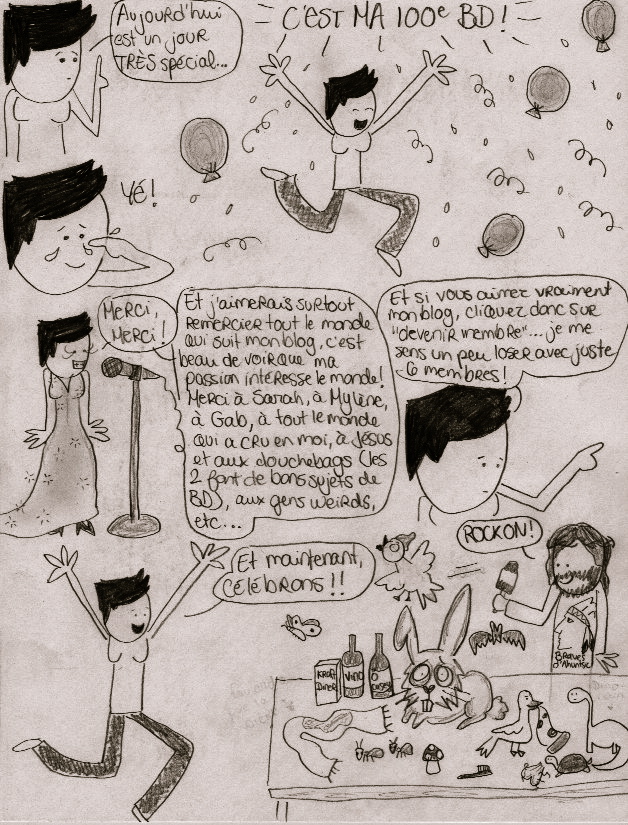 Aujourd'hui
est un jour
TRÈS spécial...
C'EST MA 100e BD!
YÉ!
Merci,
Merci!
Et j'aimerais surtout
remercier tout le monde
qui suit mon blog, c'est
beau de voir que ma
passion intéresse le monde!
Merci à Sarah, à Mylène,
à Gab, à tout le monde
qui a cru en moi, à Jésus
et aux douchebags (les
2 font de bons sujets de
BD), aux gens weirds,
etc...
Et si vous aimez vraiment
mon blog, cliquez donc sur
"devenir membre"... je me
sens un peu loser avec juste
6 membres!
Et maintenant,
célébrons!!
ROCK ON!
Braves
d'Ahuntsic
Kraft
Diner
Vino